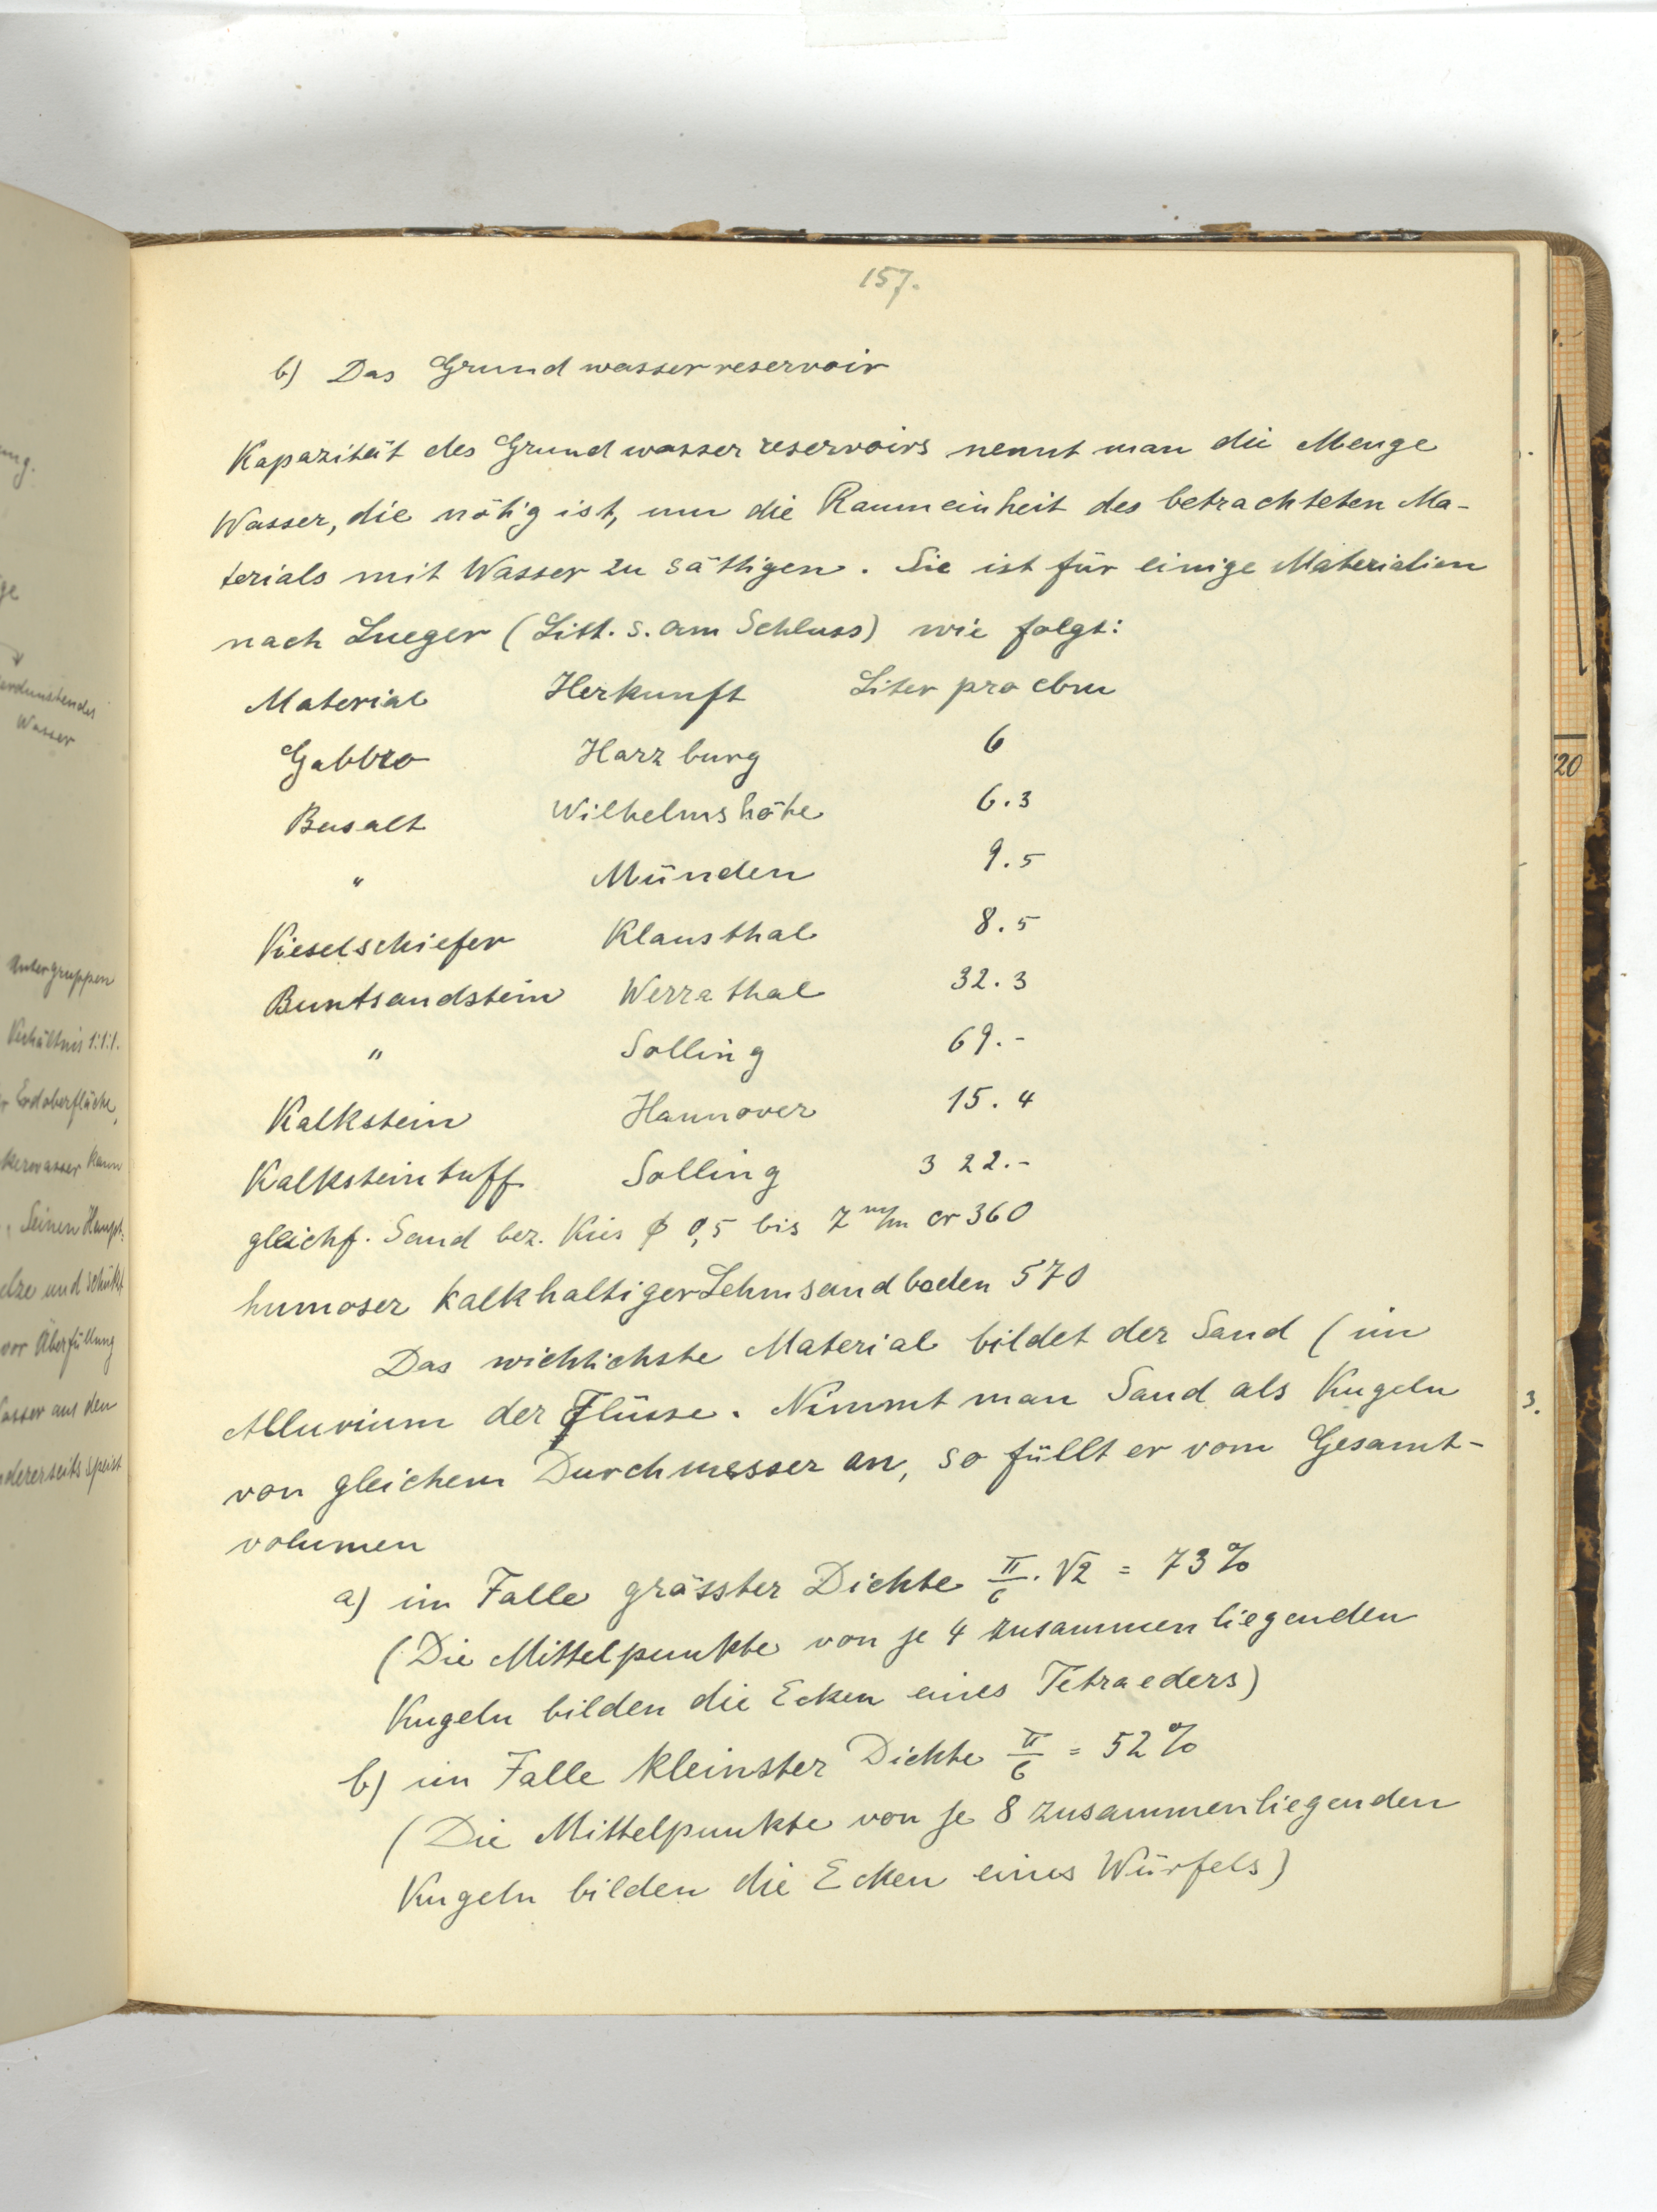 157.
b) Das Grundwasserreservoir
Kapazität des Grundwasserreservoirs nennt man die Menge
Wasser, die nötig ist, um die Raumeinheit des betrachteten Ma-
terials mit Wasser zu sättigen. Sie ist für einige Materialien
nach Lueger (Litt. s. am Schluss) wie folgt:
Material Herkunft Liter pro cbm
Gabbro Harzburg 6
Basalt Wilhelmshöhe 6.3
" Münden 9.5
Kieselschiefer Klausthal 8.5
Buntsandstein Werrathal 32.3
" Solling 69.-
Kalkstein Hannover 15.4
Kalksteintuff Solling 322.-
gleichf. Sand bez. Kies ϕ 0,5 bis 7 m/m cr 360
humoser kalkhaltiger Lehmsandboden 570
Das wichtichste Material bildet der Sand (im
Alluvium der Flüsse. Nimmt man Sand als Kugeln
von gleichem Durchmesser an, so füllt er vom Gesamt-
volumen
a) im Falle grösster Dichte π/6 · √2 = 73%
(Die Mittelpunkte von je 4 zusammenliegenden
Kugeln bilden die Ecken eines Tetraeders)
b) im Falle kleinster Dichte π/6 = 52%
(Die Mittelpunkte von je 8 zusammenliegenden
Kugeln bilden die Ecken eines Würfels)
Wasser
Untergruppen
Verhältnis 1:1:1.
Erdoberfläche,
kann
Seinen Haupt-
und schützt
vor Überfüllung
aus den
speist
20
3.